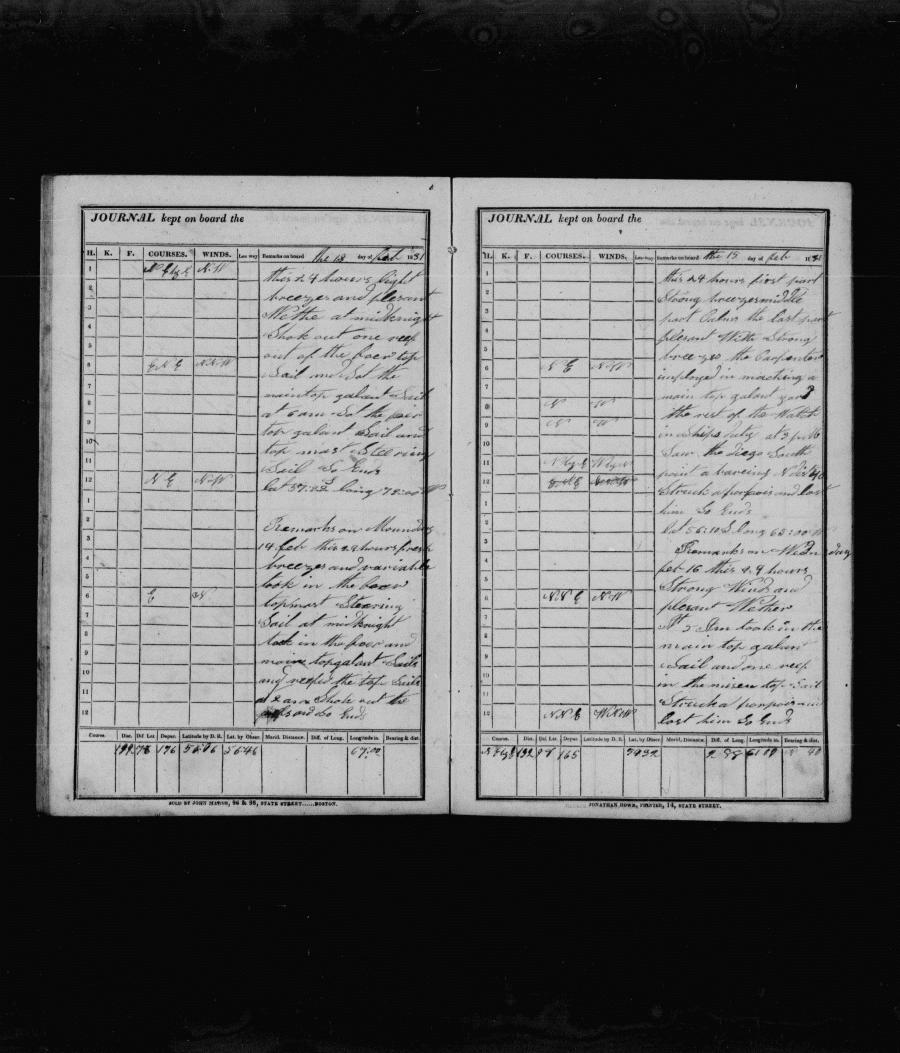 JOURNAL kept on board the
H. K. F. COURSES. WINDS. Lee-way Remarks on board the 13 day of feb 1831
N by E N.W
this 24 hours light
breezes and plesant
Wethe at midknight
Shok out one reef
out of the foer top
Sail and Sot the
E N E N N W
main top galant Sail
at 6 am Sot the foer
top galant Sail and
top mast Steering
Sail So Ends
N E N W
Lat 57:12 S long 72:00 W
Remarks on Mounday
14 feb this 24 hours fresh
breezes and variable
took in the foer
E N
topmast Steering
Sail at midknight
took in the foer and
main topgalant Sails
and reefed the top Sails
at 8 am Shok out the
reefs and So Ends
Course. Dist. Dif. Lat. Depar. Latitude by D. R. Lat. by Obser. Merid. Distance. Diff. of Long. Longitude in. Bearing & dist.
192 78 176 56:06 56:46 67:00
SOLD BY JOHN MARSH, 96 & 98, STATE STREET......BOSTON.
JOURNAL kept on board the
H. K. F. COURSES. WINDS. Lee-way Remarks on board the 15 day of feb 1831
this 24 hours first part
Strong breezes middle
part Calms the last part
plesant With Strong
breezes the Carpenter
N E N W
imployed in macking a
main top galant yard
N W
the rest of the Watch
N W
in Ships duty at 3 p M
Saw the diego South
N by E W by N
point a bareing N dist 40
Struck a porpois and lost
him So Ends
Lat 56:10 S Long 65:00 W
Remarks on Wednsday
feb 16 this 24 hours
Strong Winds and
N N E N W
plesant Wether
At 5 Am took in the
main top galant
Sail and one reef
in the mizen top Sail
Struck a porpois and
N N E W N W
Lost him So Ends
Course. Dist. Dif. Lat. Depar. Latitude by D. R. Lat. by Obser. Merid. Distance. Diff. of Long. Longitude in. Bearing & dist.
192 98 165 5432 2 88 61 09 40
JONATHAN HOWE, PRINTER, 14, STATE STREET.